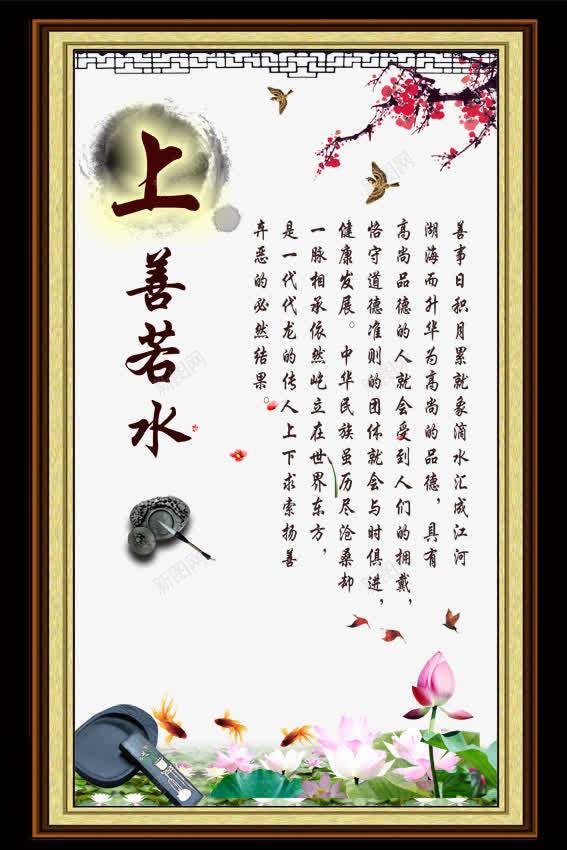 上善若水
善事日积月累就象滴水汇成江河
湖海而升华为高尚的品德，具有
高尚品德的人就会受到人们的拥戴，
恪守道德准则的团体就会与时俱进，
健康发展。中华民族虽历尽沧桑却
一脉相承依然屹立在世界东方，
是一代代龙的传人上下求索扬善
弃恶的必然结果。